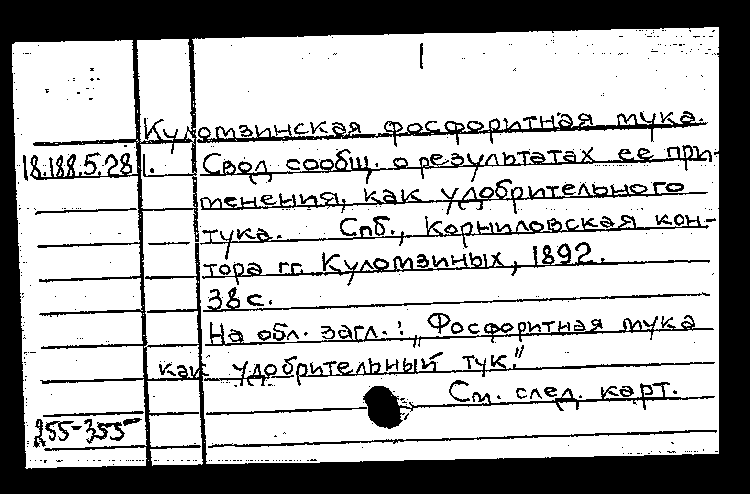 Куломзинская фосфоритная мука.
18.188.5.28 1. Свод сообщ. о результатах ее при-
менения, как удобрительного
тука. Спб., Корниловская кон-
тора гг. Куломзиных, 1892.
38 с.
На обл. загл.: „Фосфоритная мука
как удобрительный тук."
См. след. карт.
255-355